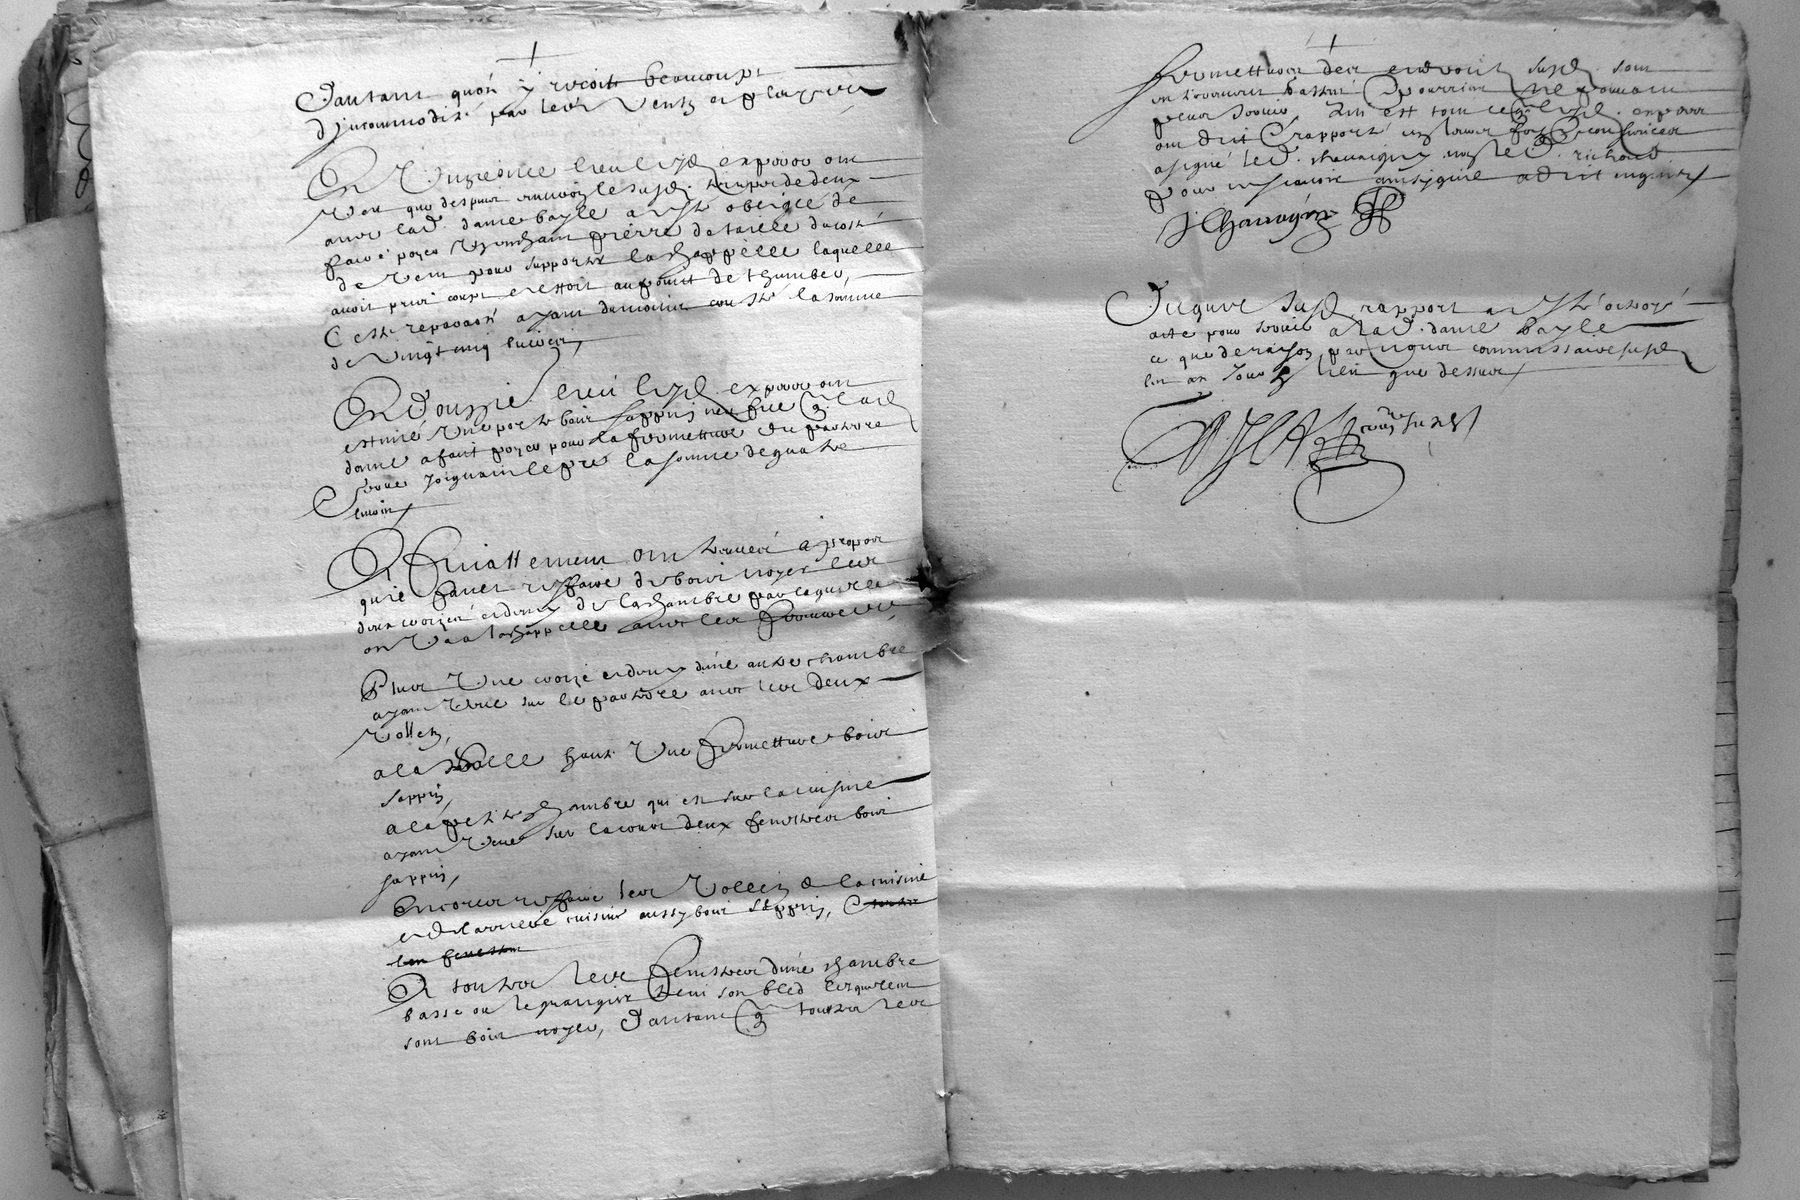 D'autant quon y recoit beaucoupt
d'jncommodité par les vents et pluyes
En unziesme lieu lesd expers ont
veu que despuis environ le susd. temps de deux
ans lad. dame bayle a esté obligée de
faire poser ung chant pierre de taille du costé
de vent pour supporter la chappelle laquelle
avoit prins coupt et estoit au point de thumber,
Ceste reparaon ayant du moins cousté la somme
de vingt cinq livres,
En douzie lieu lesd expers ont
estimé une porte bois sappin neufve q lad
dame a fait poser pour la fermetture du pasture
joignant le pre la somme de quatre
livres
Et finallement ont trouvé a propos
qu'il faut reffaire de bois noyer les
deux croisées et demy de la chambre par laquelle
on va a la chappelle avec les
Plus une croisée et demy d'une autre chambre
ayant veue sur le pasture avec les deux
vollets,
a la salle haute une fermetture bois
sappin,
a la petite chambre qui est sur la cuisine
ayant veue sur la cour deux fenestres bois
sappin,
Encores reffaire les vollets de la cuisine
et de l'arriere cuisine aussy bois sappin, Et toutes
les fenestres
Et toutes les fenestres d'une chambre
basse ou le grangier tient son bled lesquelles
sont bois noyer, D'autant q toutes les
fermettures des endroits susd. sont
en trouvant bassin pourries ne pouvant
plus servir, Qui est tout ce q lesd. expers
ont dit et rapporté en leur foy et conscience
a signé led. chavagny non led. richard
pour ne scavoir ainsy qu'il a dit enquis
J Chavagny
Duquel susd. rapport a esté octroyé
acte pour servir a lad. dame bayle
ce que de raison par nous commissaire susd
les an jour et lieu que dessus
comre susd